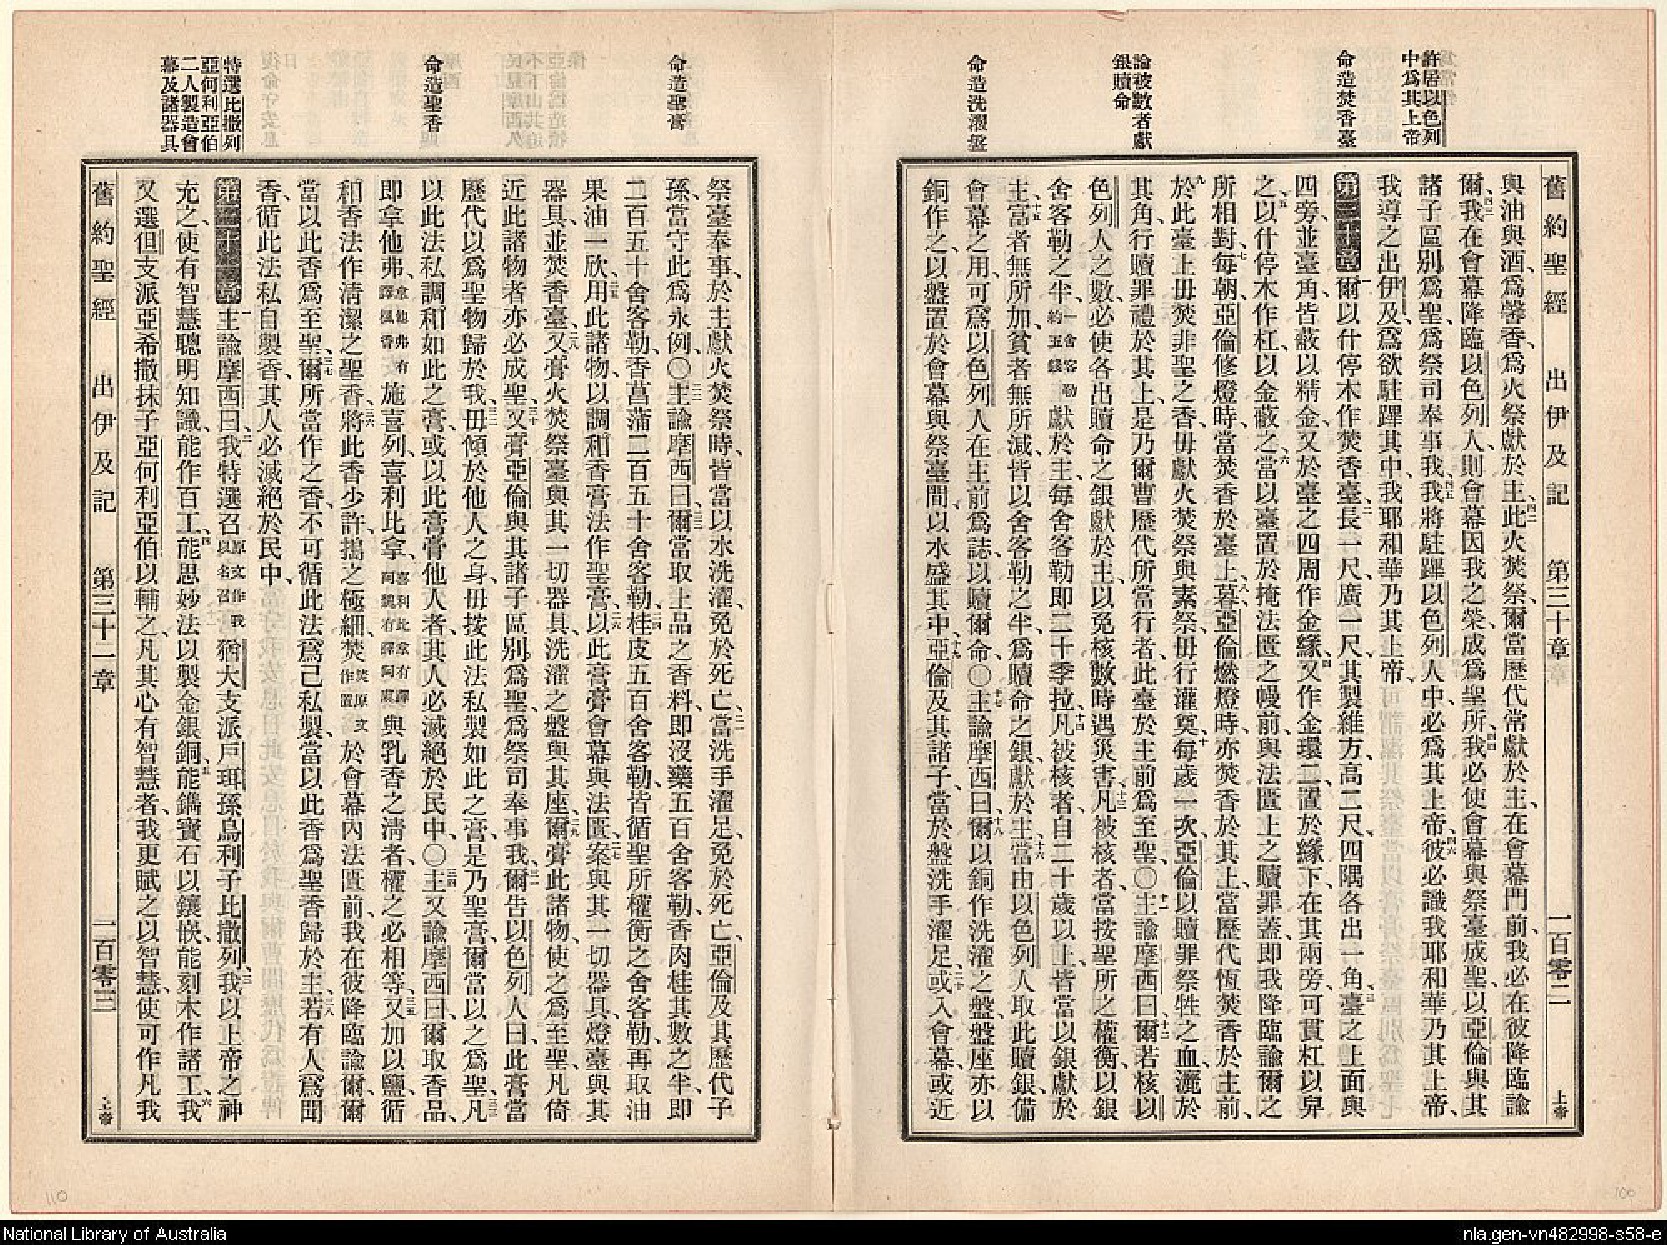 許居以色列
中爲其上帝
命造焚香臺
論被數者獻
銀贖命
命造洗濯盤
舊約聖經 出伊及記 第三十章 一百零二 上帝
與油與酒、爲馨香、爲火祭獻於主、四二此火焚祭、爾當歷代常獻於主、在會幕門前、我必在彼降臨諭
爾、四三我在會幕降臨以色列人、則會幕因我之榮、成爲聖所、四四我必使會幕與祭臺成聖、以亞倫與其
諸子區別爲聖、爲祭司奉事我、四五我將駐蹕以色列人中、必爲其上帝、四六彼必識我耶和華乃其上帝、
我導之出伊及、爲欲駐蹕其中、我耶和華乃其上帝、
第三十章 一爾以什停木作焚香臺、二長一尺、廣一尺、其製維方、高二尺、四隅各出一角、三臺之上面與
四旁、並臺角、皆蔽以精金、又於臺之四周作金緣、四又作金環二、置於緣下、在其兩旁、可貫杠以舁
之、五以什停木作杠、以金蔽之、六當以臺置於掩法匱之幔前、與法匱上之贖罪蓋、卽我降臨諭爾之
所相對、七每朝亞倫修燈時、當焚香於臺上、八暮亞倫燃燈時、亦焚香於其上、當歷代恆焚香於主前、
九於此臺上毋焚非聖之香、毋獻火焚祭與素祭、毋行灌奠、十每歲一次、亞倫以贖罪祭牲之血灑於
其角、行贖罪禮於其上、是乃爾曹歷代所當行者、此臺於主前爲至聖、〇十一主諭摩西曰、十二爾若核以
色列人之數、必使各出贖命之銀獻於主、以免核數時遇災害、十三凡被核者、當按聖所之權衡、以銀
舍客勒之半、一舍客勒約五錢獻於主、每舍客勒卽二十季拉、十四凡被核者、自二十歲以上、皆當以銀獻於
主、十五富者無所加、貧者無所減、皆以舍客勒之半、爲贖命之銀、獻於主、十六當由以色列人取此贖銀、備
會幕之用、可爲以色列人在主前爲誌、以贖爾命、〇十七主諭摩西曰、十八爾以銅作洗濯之盤、盤座亦以
銅作之、以盤置於會幕與祭臺間、以水盛其中、十九亞倫及其諸子、當於盤洗手濯足、二十或入會幕、或近
命造聖膏
命造聖香
特選比撒列
亞何利亞伯
二人製造會
幕及諸器具
祭臺奉事、於主獻火焚祭時、皆當以水洗濯、免於死亡、二一當洗手濯足、免於死亡、亞倫及其歷代子
孫、當守此爲永例、〇二二主諭摩西曰、二三爾當取上品之香料、卽沒藥五百舍客勒、香肉桂其數之半、卽
二百五十舍客勒、香菖蒲二百五十舍客勒、二四桂皮五百舍客勒、皆循聖所權衡之舍客勒、再取油
果油一欣、二五用此諸物、以調和香膏法作聖膏、二六以此膏膏會幕與法匱、二七案與其一切器具、燈臺與其
器具、並焚香臺、二八又膏火焚祭臺與其一切器具、洗濯之盤與其座、二九爾膏此諸物、使之爲至聖、凡倚
近此諸物者、亦必成聖、三十又膏亞倫與其諸子、區別爲聖、爲祭司奉事我、三一爾告以色列人曰、此膏當
歷代以爲聖物歸於我、三二毋傾於他人之身、毋按此法私製如此之膏、是乃聖膏、爾當以之爲聖、三三凡
以此法私調和如此之膏、或以此膏膏他人者、其人必滅絕於民中、〇三四主又諭摩西曰、爾取香品、
卽拿他弗、拿他弗有譯楓香施喜列、喜利比拿、喜利比拿有譯阿魏有譯阿虞與乳香之清者、權之必相等、三五又加以鹽、循
和香法、作清潔之聖香、三六將此香少許、擣之極細、焚焚原文作置於會幕內法匱前、我在彼降臨諭爾、爾
當以此香爲至聖、三七爾所當作之香、不可循此法爲己私製、當以此香爲聖香歸於主、三八若有人爲聞
香、循此法私自製香、其人必滅絕於民中、
第三十一章 一主諭摩西曰、二我特選召原文作我以名召猶大支派戶珥孫烏利子比撒列、三我以上帝之神
充之、使有智慧聰明知識、能作百工、四能思妙法、以製金銀銅、五能鐫寶石以鑲嵌、能刻木作諸工、六我
又選但支派亞希撒抹子亞何利亞伯以輔之、凡其心有智慧者、我更賦之以智慧、使可作凡我
舊約聖經 出伊及記 第三十二章 一百零三 上帝
110
100
National Library of Australia
nla.gen-vn482998-s58-e